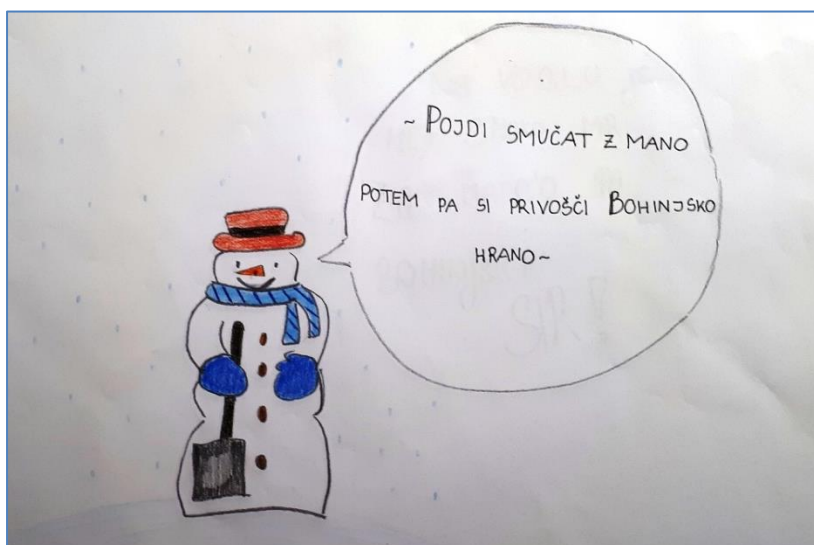 ~ POJDI SMUČAT Z MANO
POTEM PA SI PRIVOŠČI BOHINJSKO
HRANO~